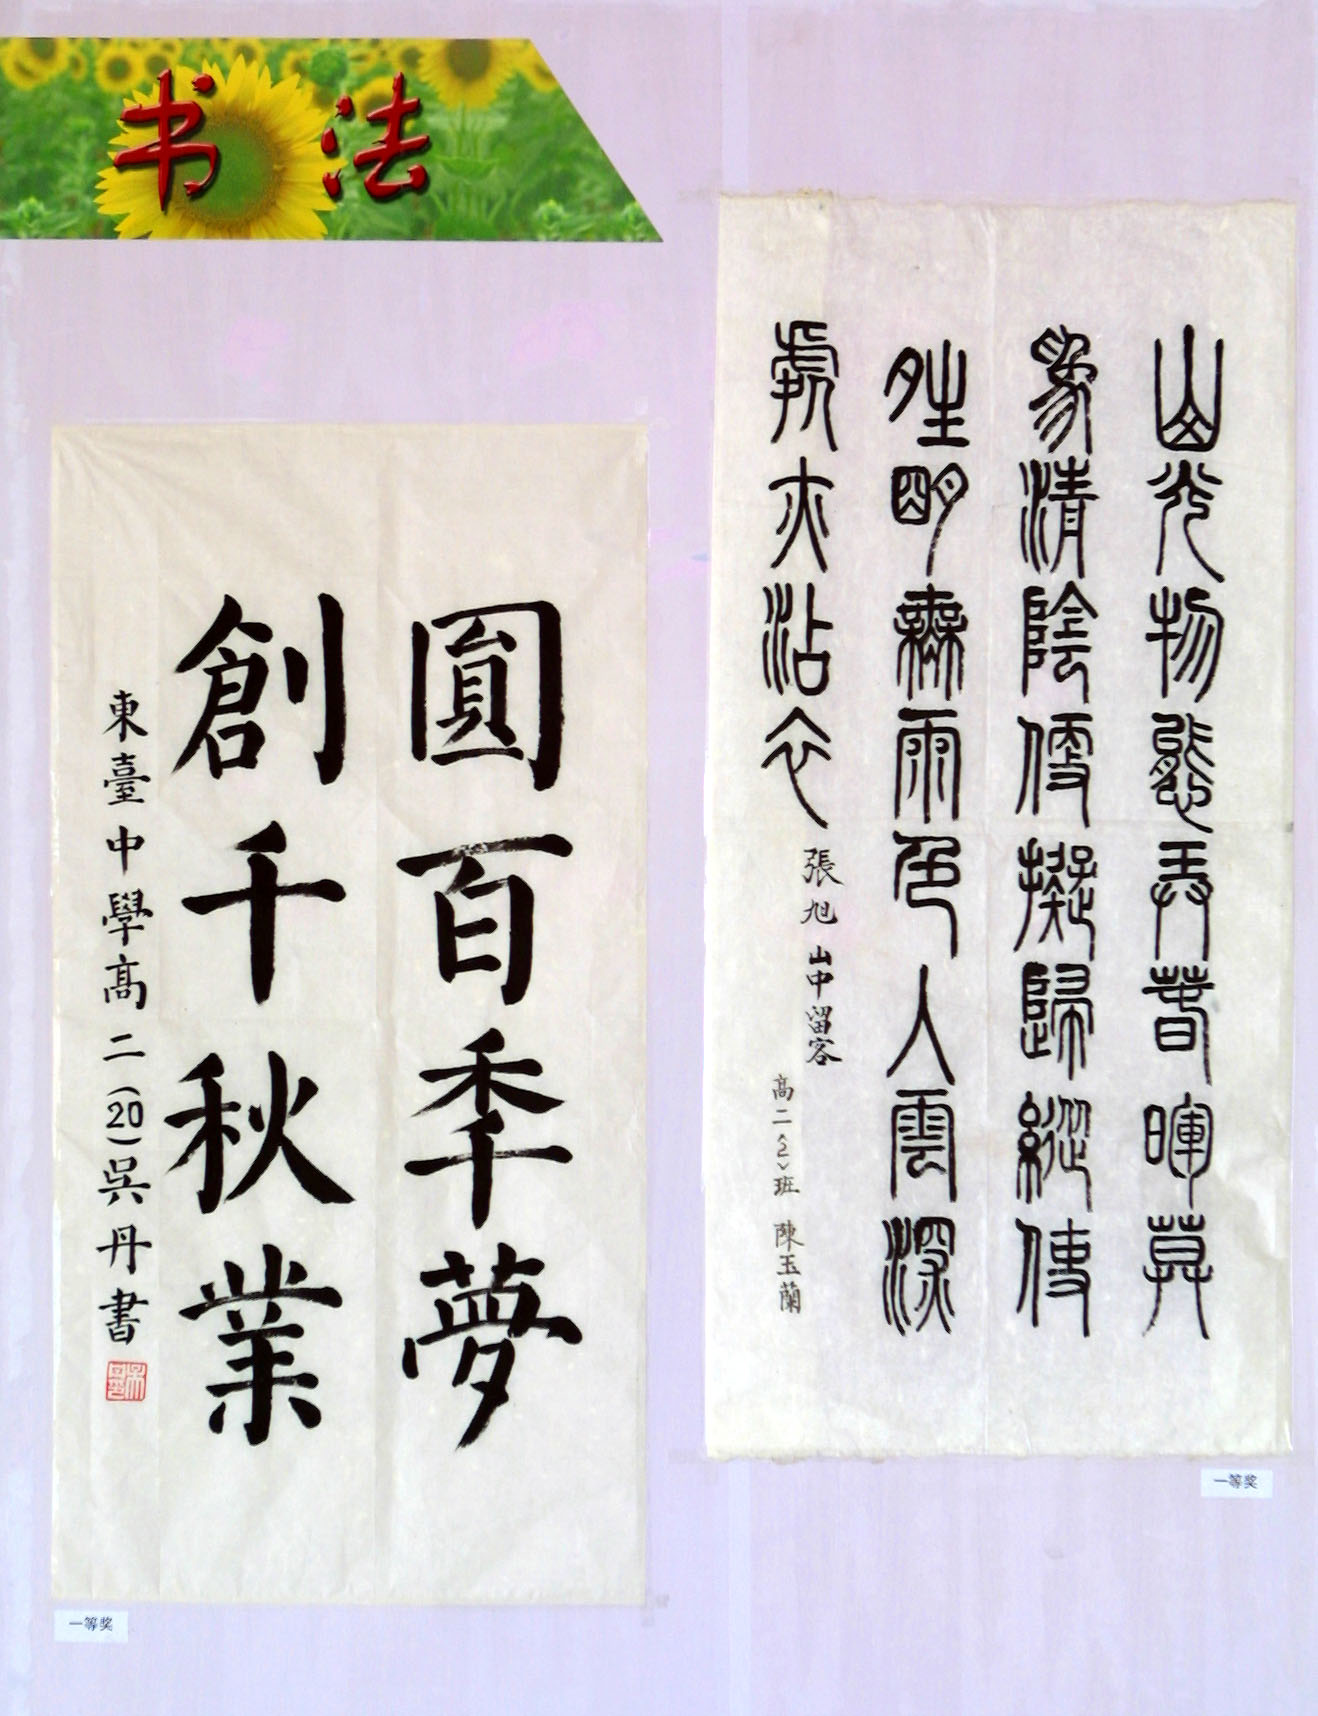 书 法
圓百秊夢
創千秋業
東臺中學高二(20)吳丹書
一等奖
山光物態弄春暉莫
為清陰便擬歸縱使
晴明無雨色入雲深
處亦沾衣
張旭 山中留客
高二〈2〉班 陳玉蘭
一等奖